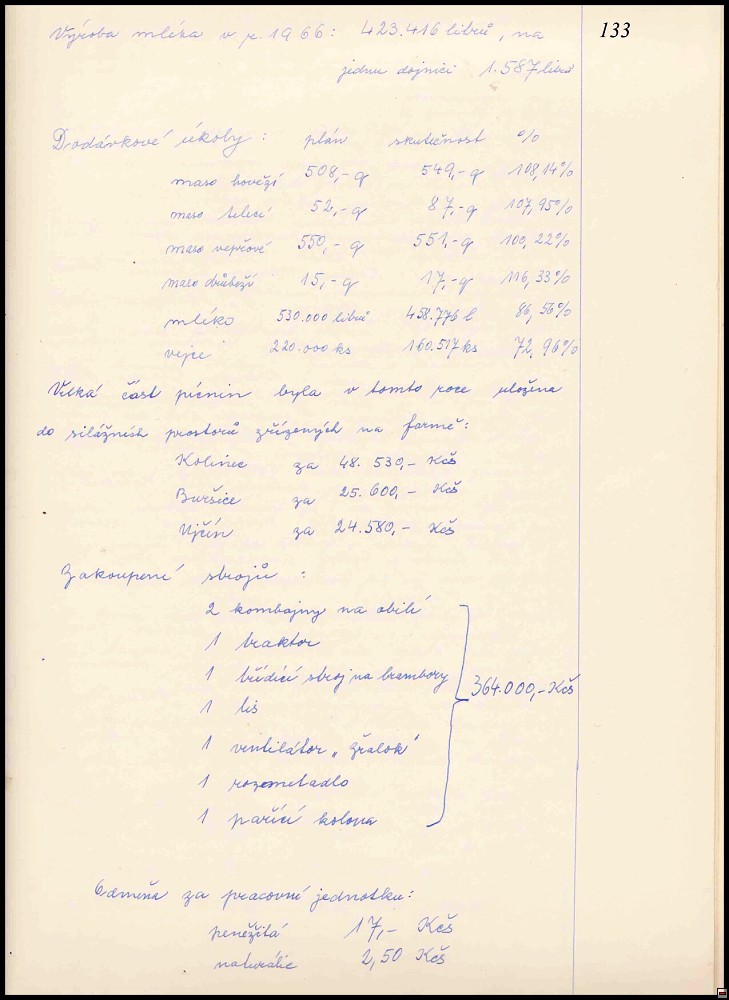 133
Výroba mléka v r. 1966: 423.416 litrů, na
jednu dojnici 1.587 litrů
Dodávkové úkoly: plán skutečnost %
maso hovězí 508,- q 549,- q 108,14%
maso telecí 52,- q 87,- q 107,95%
maso vepřové 550,- q 551,- q 100,22%
maso drůbeží 15,- q 17,- q 116,33%
mléko 530.000 litrů 458.776 l 86,56%
vejce 220.000 ks 160.517 ks 72,96%
Velká část pícnin byla v tomto roce uložena
do silážních prostorů zřízených na farmě:
Kolinec za 48.530,- Kčs
Buršice za 25.600,- Kčs
Ujčín za 24.580,- Kčs
Zakoupení strojů:
2 kombajny na obilí
1 traktor
1 třídící stroj na brambory 364.000,- Kčs
1 lis
1 ventilátor „žralok"
1 rozmetadlo
1 pařící kolona
Odměna za pracovní jednotku:
peněžitá 17,- Kčs
naturálie 2,50 Kčs